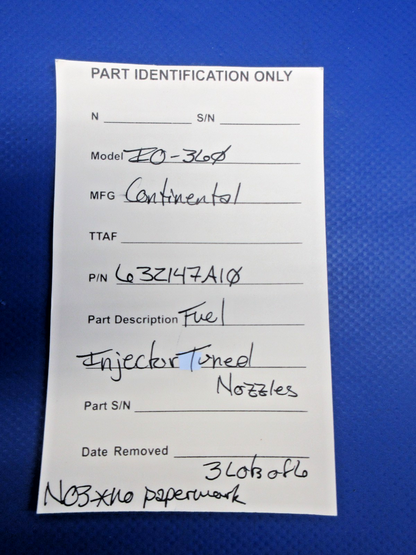 PART IDENTIFICATION ONLY
N ____________ S/N ____________
Model IO-360
MFG Continental
TTAF
P/N 632147A10
Part Description Fuel
Injector Tuned
Nozzles
Part S/N
Date Removed
3 Lots of 6
no paperwork